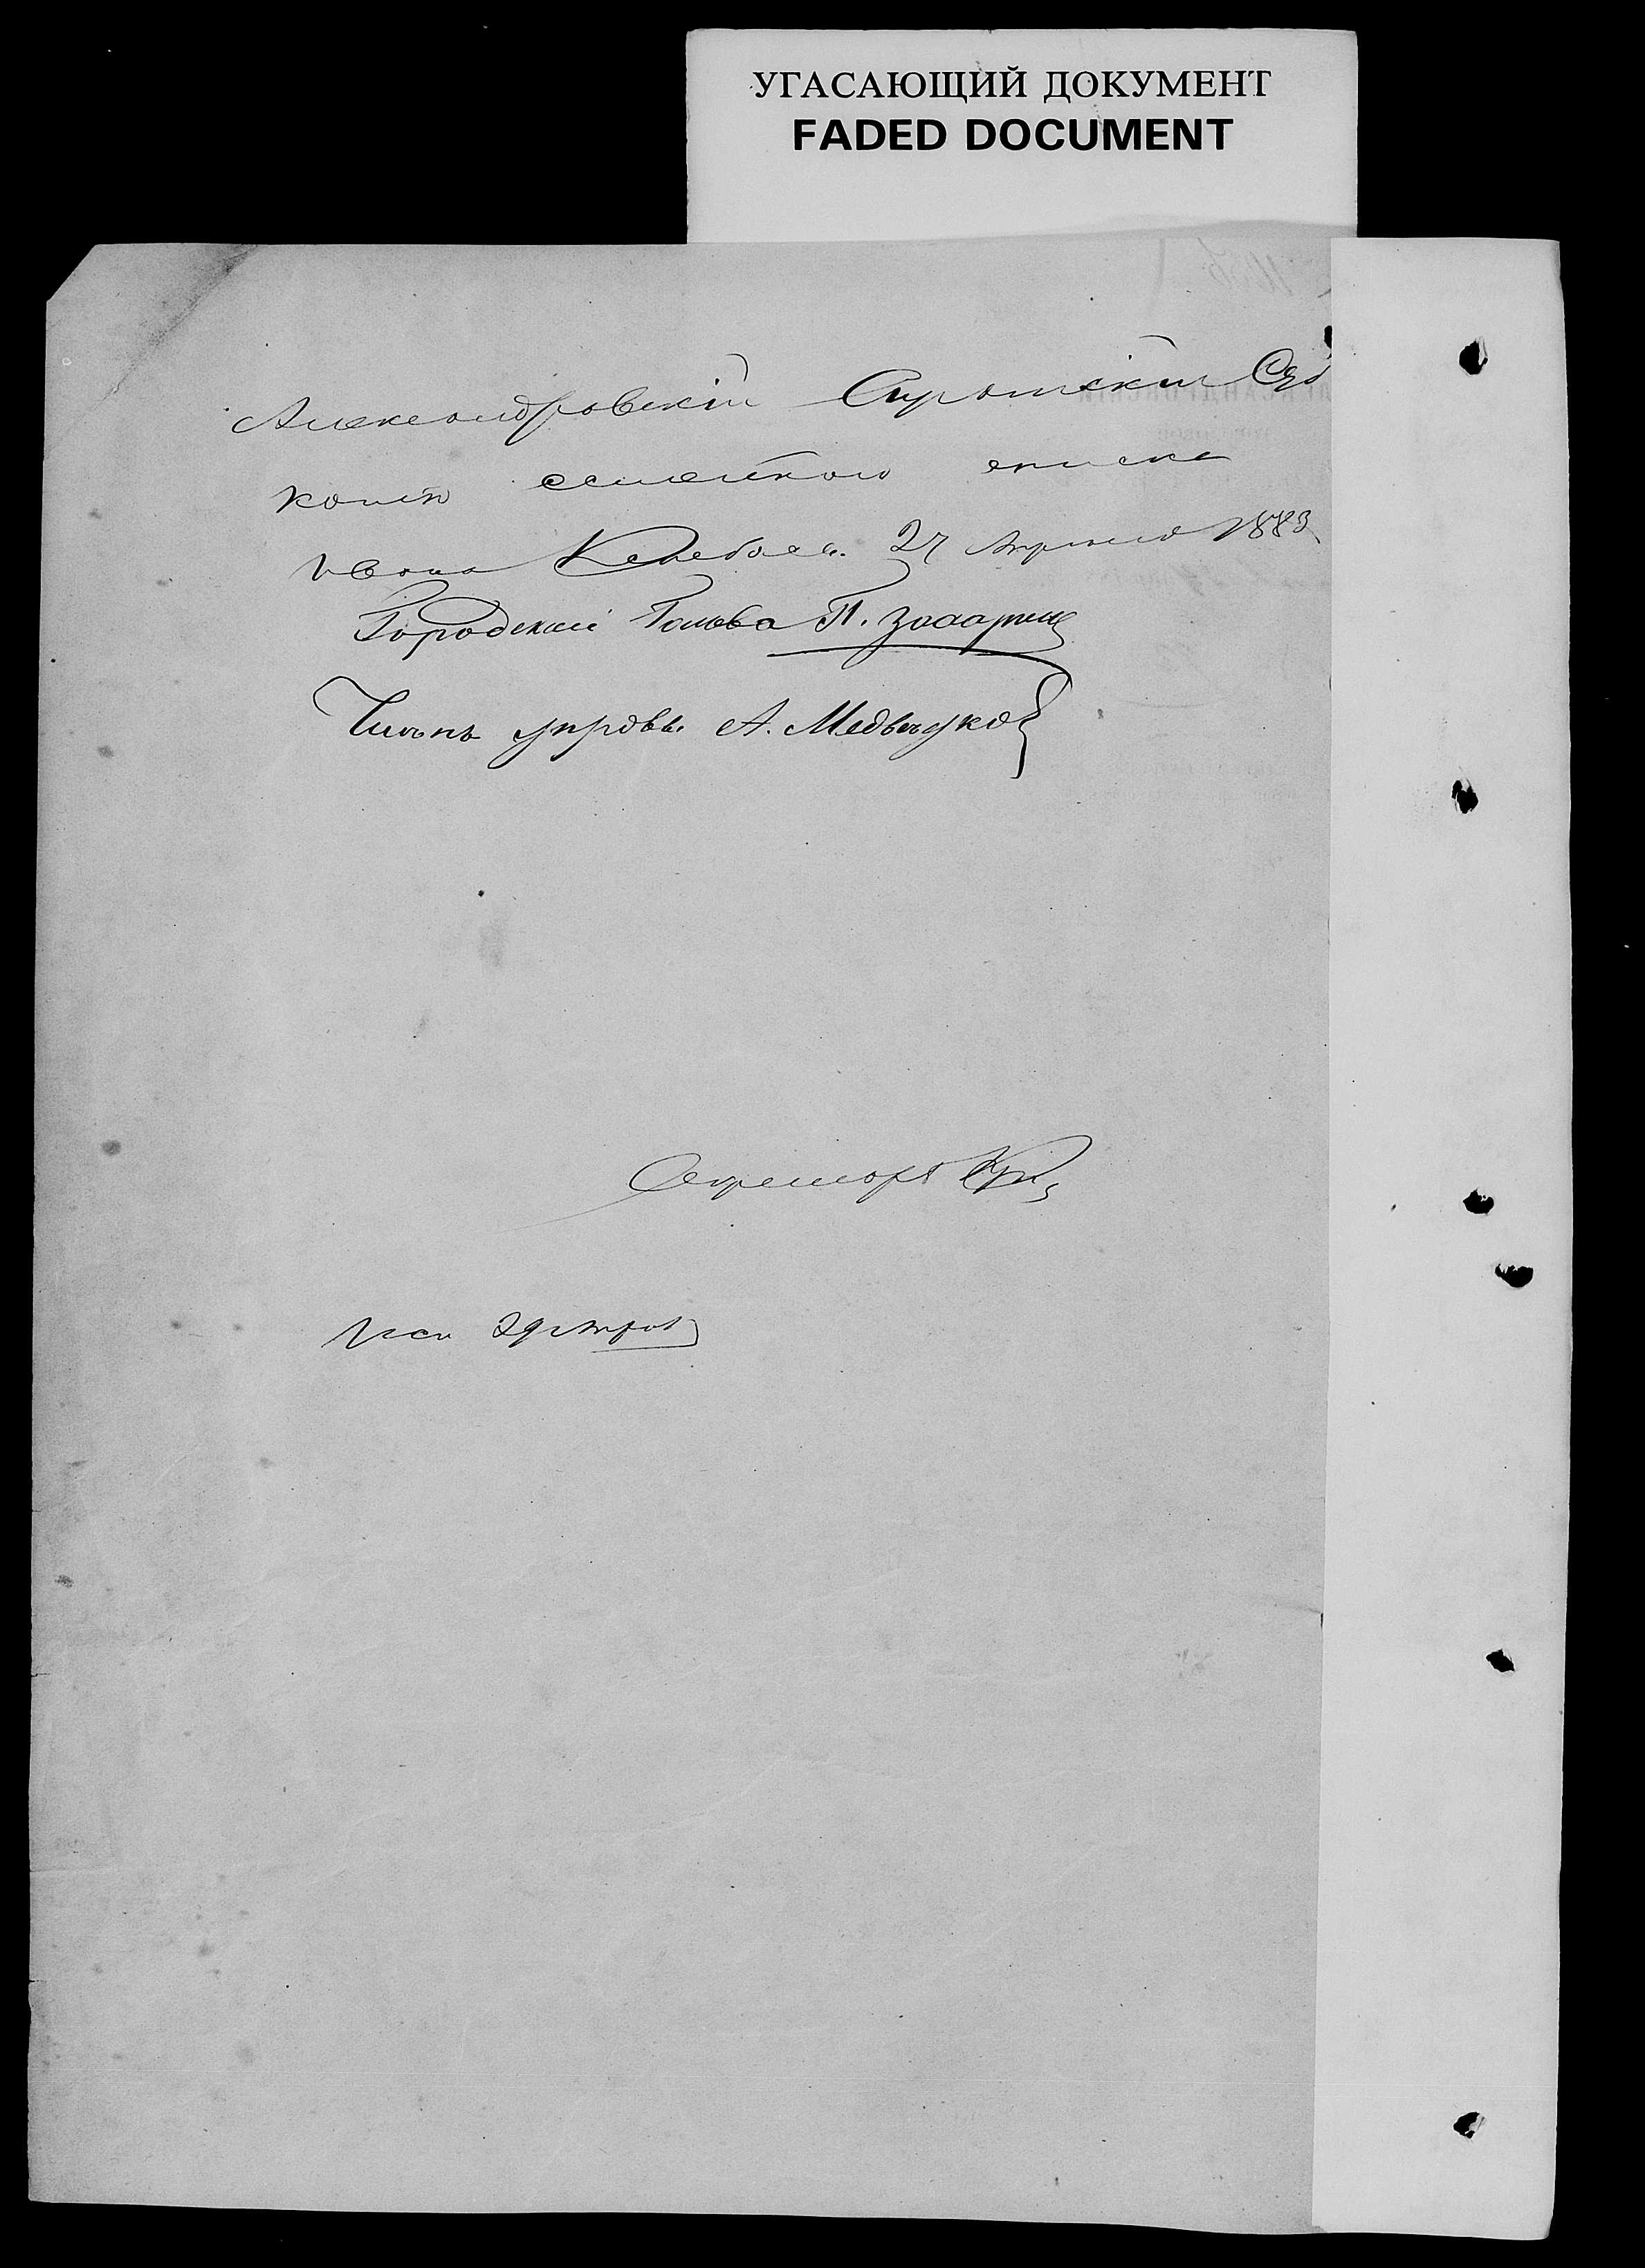 УГАСАЮЩИЙ ДОКУМЕНТ
FADED DOCUMENT
Александровскій Сиротскій Суд
копію семейного списка
Ивана 27 Апреля 1883
Городской Голова П.
Членъ управы А. Медведков
Секретарь
Исп 29 Апрел